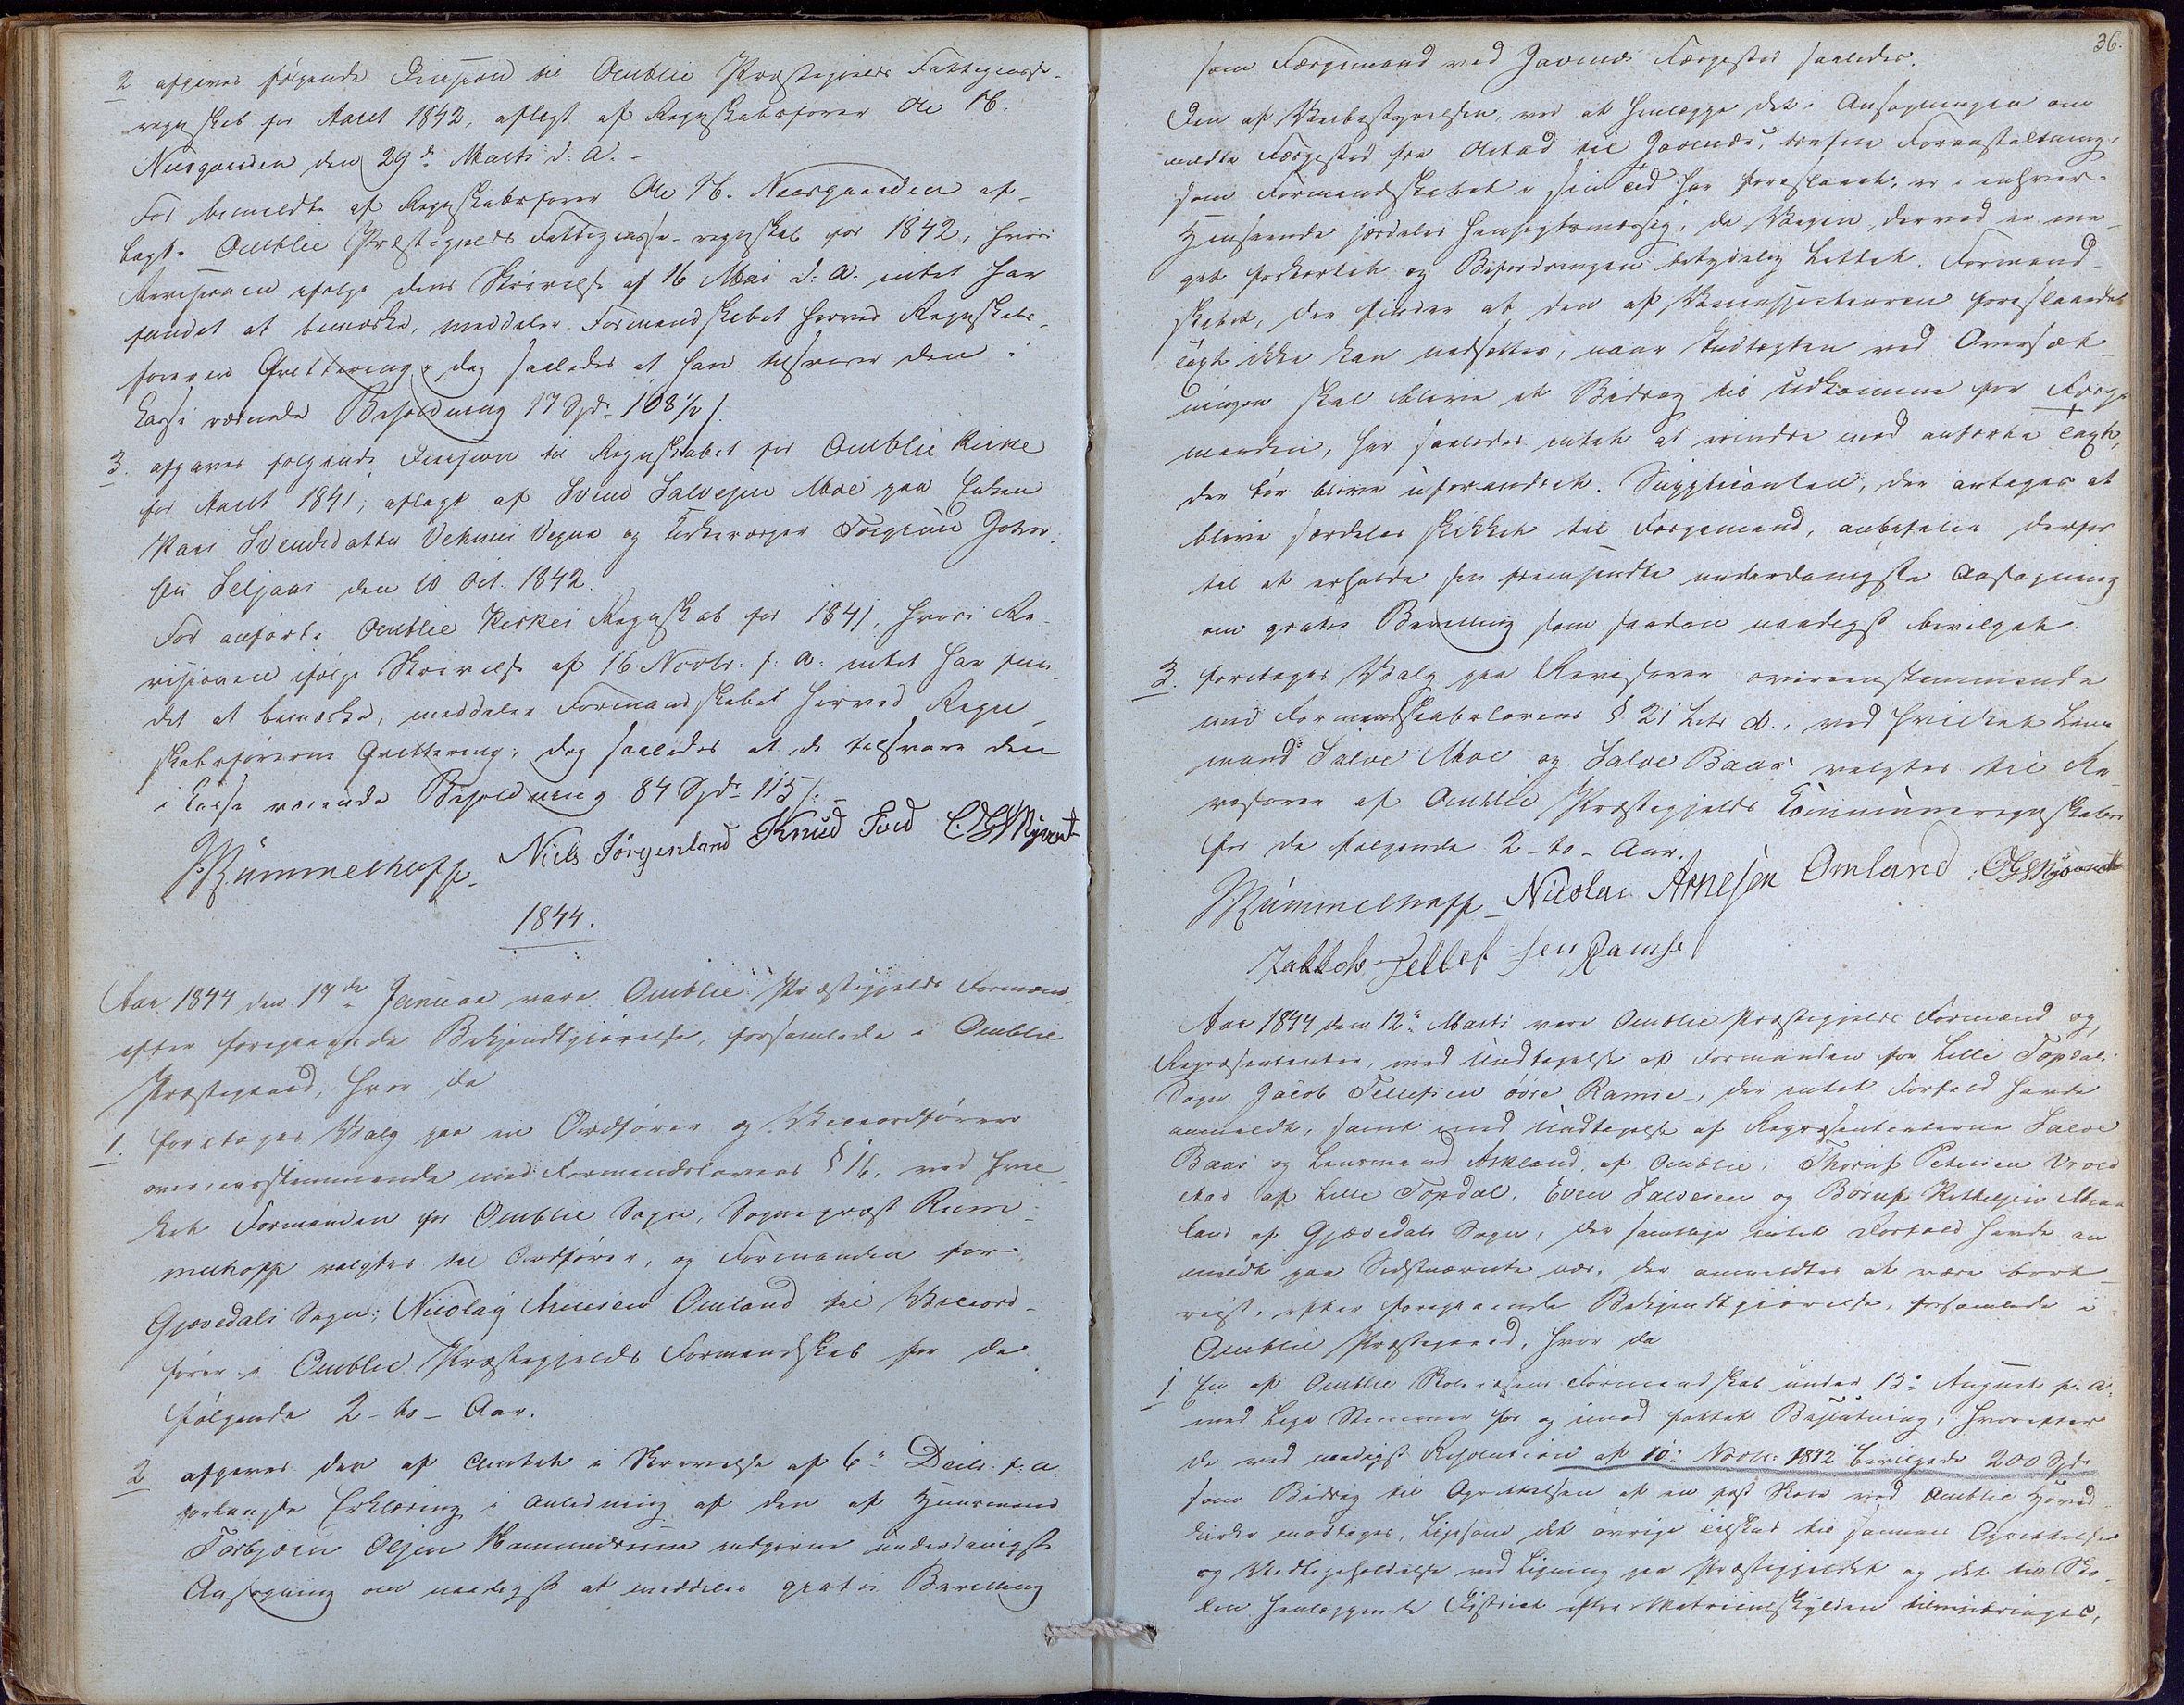 2 afgives følgende Decision til Omblie Præstegjelds Fattigcasse-
regnskab for Aaret 1842, aflagt af Regnskabsfører Ole N.
Neesgaarden den 29de Marts d: A. -
For bemeldte af Regnskabsfører Ole N. Neesgaarden af-
lagte Omblie Præstegjelds Fattigcasse-regnskab for 1842, hvori
Revisionen ifølge dens Skrivelse af 16 Mai d: A: intet har
fundet at bemærke, meddeler Formandskabet herved Regnskabs-
føreren Qvittering, dog saaledes at han tilsvarer den i
Casse værende Beholdning 17 Spd. 108 ½ /.
3. afgaves følgende Decision til Regnskabet for Omblie Kirke
for Aaret 1841, aflagt af Svend Salvesen Moe paa Enken
Kari Svendsdatter Vehuus Vegne og Kirkeværger Torgrim Johns-
sen Seljaas den 10 Oct. 1842.
For anførte Omblie Kirkes Regnskab for 1841, hvori Re-
visionen ifølge Skrivelse af 16 Novbr. f: A: intet har fun-
det at bemærke, meddeler Formandskabet herved Regn-
skabsførerne Qvittering, dog saaledes at de tilsvare den
i Casse værende Beholdning 84 Spd. 115 /.
Rümmelhoff Niels Jörgenland Knud
1844.
Aar 1844 den 17de Januar vare Omblie Præstegjelds Formænd,
efter foregaaende Bekjendtgjørelse, forsamlede i Omblie
Præstegaard, hvor da
1. foretoges Valg paa en Ordfører og Viceordfører
overeensstemmende med Formandslovens § 16, ved hvil-
ket Formanden for Omblie Sogn, Sognepræst Rum-
melhoff valgtes til Ordfører, og Formanden for
Gjøvedals Sogn; Nicolay Arnesen Omland til Viceord-
fører i Omblie Præstegjelds Formandskab for de
følgende 2 - to - Aar.
2 afgaves den af Amtet i Skrivelse af 6te Decbr. f. A.
forlangte Erklæring i Anledning af den af Huusmand
Torbjørn Olsen indgivne underdanigste
Ansøgning om naadigst at meddeles gratis Bevilling
36.
som Færgemand ved Jovends Færgested saaledes.
Den af Veibestyrelsen, ved at henlægge det i Ansøgningen om-
meldte Færgested fra til Jovends, trufne Foranstaltning,
som Formandskabet i sin Tid har foreslaaet, er i enhver
Henseende særdeles hensigtsmæssig, da Veien derved er me-
get forkortet og Befordringen betydelig lettet. Formand-
skabet, der finder at den af Veiinspecteuren foreslaaede
Taxt ikke kan nedsættes, naar Indtægten ved Oversæt-
ningen skal blive et Bidrag til Udkomme for Færge-
manden, har saaledes intet at erindre mod anførte Taxt,
der bør blive uforandret. Supplicanten, der antages at
blive særdeles skikket til Færgemand, anbefales derfor
til at erholde sin fremsendte underdanigste Ansøgning
om gratis Bevilling som saadan naadigst bevilget.
3. foretoges Valg paa Revisorer overeensstemmende
med Formandskabslovens § 21 Litr d., ved hvilket Lens-
mand Salve Moe og Salve Baas valgtes til Re-
visorer af Omblie Præstegjelds Communeregnskaber
for de følgende 2 - to - Aar.
Rümmelhoff Nicolai Arnesen Omland
Jakkob Tellefsen Ramse
Aar 1844 den 12te Marts vare Omblie Præstegjelds Formænd og
Repræsentanter, med Undtagelse af Formanden for Lille Topdals
Sogn Jacob Tellefsen øvre Ramse, der intet Forfald havde
anmeldt, samt med Undtagelse af Repræsentanterne Salve
Baas og Lensmand Askland, af Omblie, Thorulf Petersen
af Lille Topdal, Even Salvesen og
af Gjøvedals Sogn, der samtlige intet Forfald havde an-
meldt paa Sidstnævnte nær, der anmeldtes at være bort-
reist, efter foregaaende Bekjendtgjørelse, forsamlede i
Omblie Præstegaard, hvor da
1 En af Omblie Skolevæsens Formandskab under 13de August f. A.
med lige Stemmer for og imod fattet Beslutning, hvorefter
de ved naadigst Resolution af 10de Novbr: 1842 bevilgede 200 Spd.
som Bidrag til Oprettelsen af en fast Skole ved Omblie Hoved-
kirke modtages, ligesom det øvrige Tilskud til sammes Oprettelse
og Vedligeholdelse ved Ligning paa Præstegjeldet og det til Sko-
len henlæggende District efter Matriculskylden tilveiebringes,